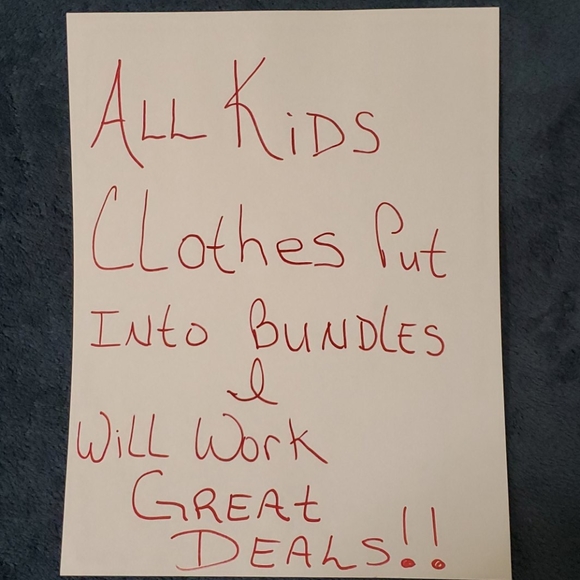 ALL KiDS
CLothes Put
INto BUNDLES
I
WiLL Work
GREAt
DEALS!!